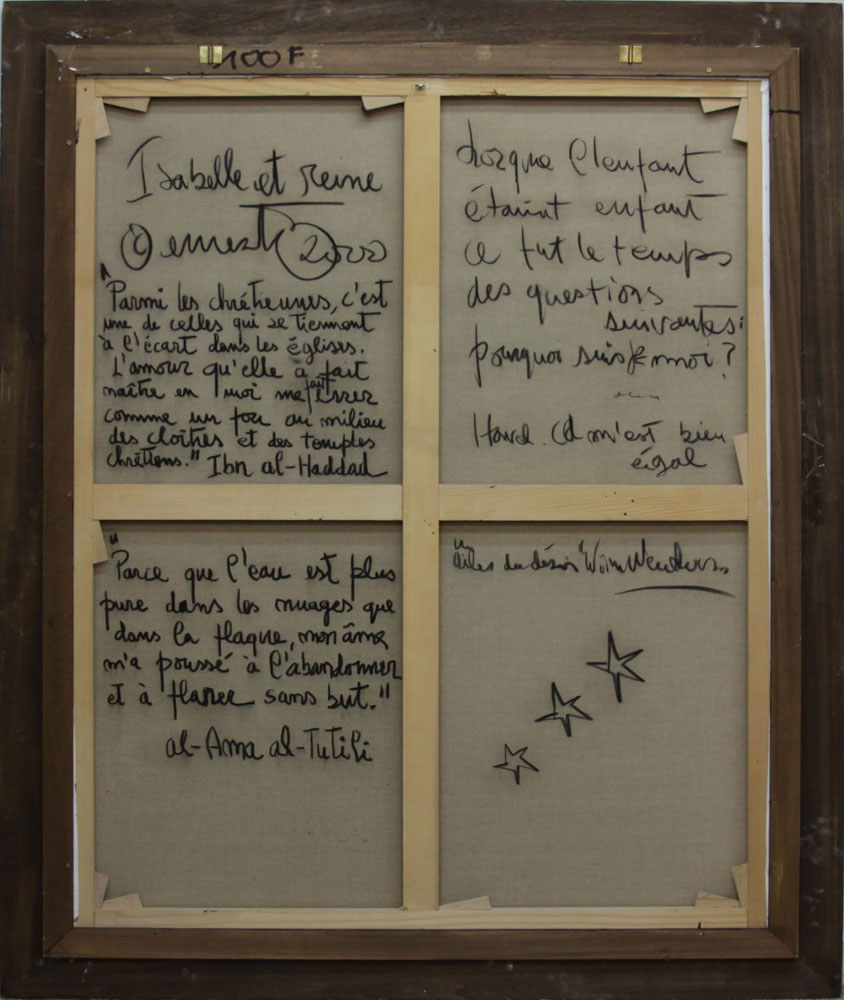 100F
Isabelle et reine
© ernesto 2000
"Parmi les chrétiennes, c'est
une de celles qui se tiennent
à l'écart dans les églises.
L'amour qu'elle à fait
naître en moi me fait errer
comme un fou au milieu
des cloîtres et des temples
chrétiens." Ibn al-Haddad
"Parce que l'eau est plus
pure dans les nuages que
dans la flaque, mon âme
m'a poussé à l'abandonner
et à flaner sans but."
al-Ama al-Tutili
Lorque l'enfant
était enfant
ce fut le temps
des questions
suivantes:
pourquoi suis je moi?
m'est bien
égal
"ailes du désir" Wim Wenders..